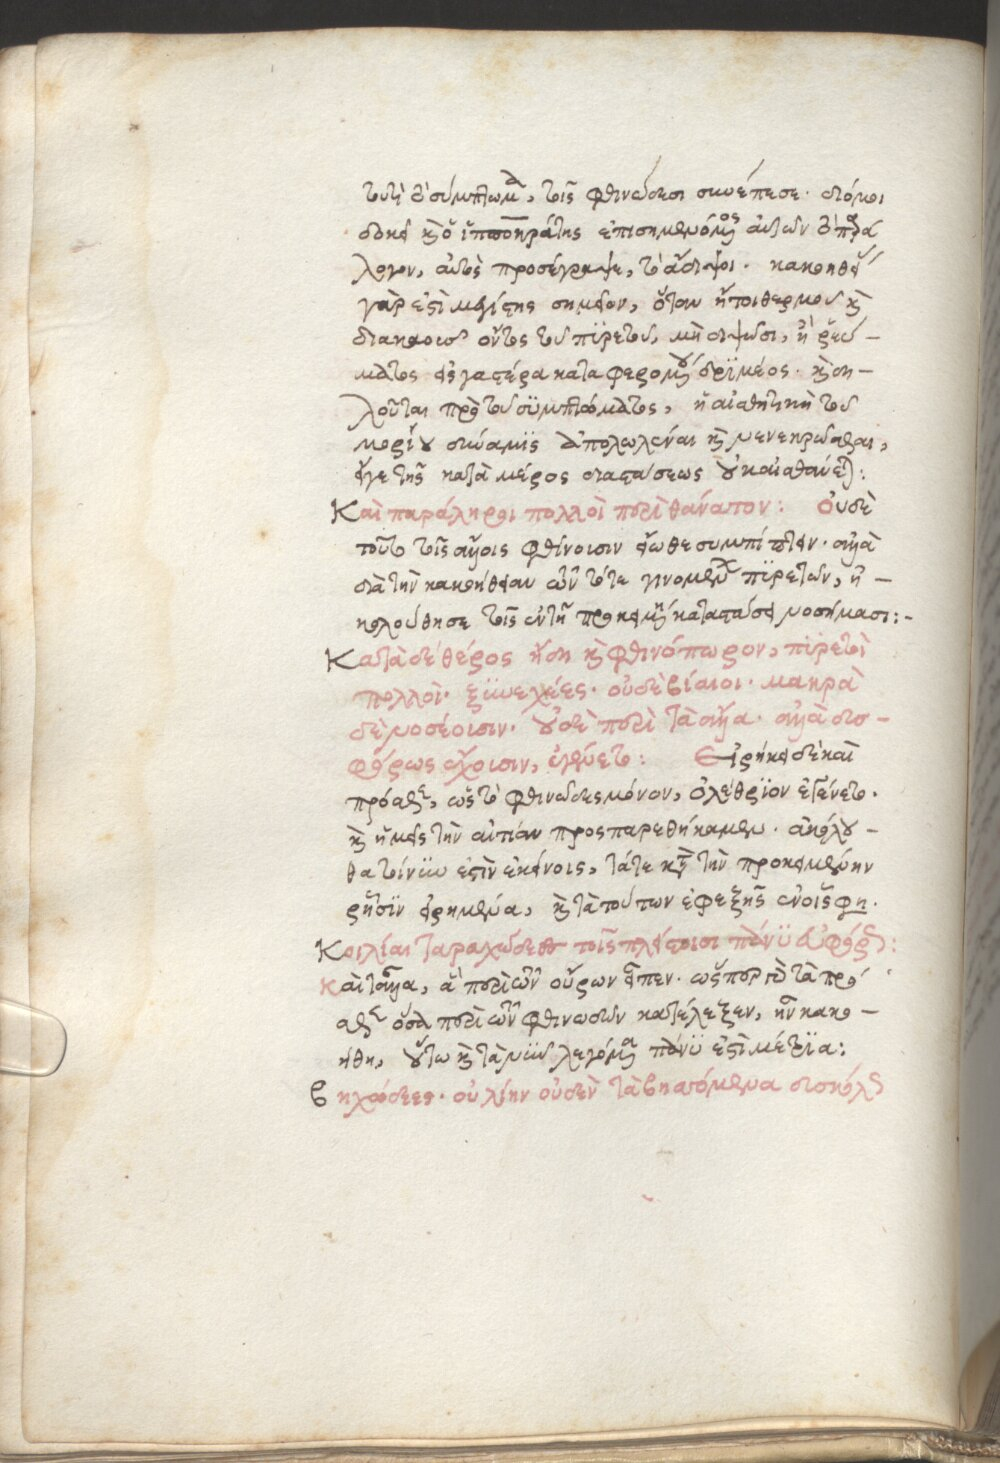 τουτὶ τὸ σύμπτωμα, τοῖς φθινώδεσι συνέπεσε· διό μοι
δοκεῖ καὶ ὁ ἱπποκράτης ἐπισημηνάμενος αὐτῶν τὸ παρά
λογον, αὐτὸς προσέγραψε, τὸ ἄδιψοι· κακοηθείας
γὰρ ἐστὶ μεγίστης σημεῖον, ὅταν ἤτοι θερμοῦ καὶ
διακαοῦς ὄντος τοῦ πυρετοῦ, μὴ διψῶσι, ἢ ῥεύ-
ματος εἰς γαστέρα καταφερομένου δριμέος· καὶ δη-
λοῦται πρὸς τοῦ συμπτώματος, ἡ αἰσθητικὴ τοῦ
μορίου δύναμις ἀπολωλέναι καὶ νενεκρῶσθαι,
εἴγε τῆς κατὰ μέρος διαστάσεως οὐκ αἰσθάνεται:
Καὶ παράληροι πολλοὶ περὶ θάνατον: Οὐδὲ
τοῦτο τοῖς ἄλλοις φθίνουσιν εἴωθε συμπίπτειν· ἀλλὰ
διὰ τὴν κακοήθειαν τῶν τότε γινομένων πυρετῶν, ἠ-
κολούθησε τοῖς ἐν τῇ προκειμένῃ καταστάσει νοσήμασι:-
Κατὰ δὲ θέρος ἤδη καὶ φθινόπωρον, πυρετοὶ
πολλοὶ· ξυνεχέες· οὐδὲ βίαιοι· μακρὰ
δὲ νοσέουσιν· οὐδὲ περὶ τὰ ἄλλα· ἀλλὰ δυσ-
φόρως ἔχουσιν, ἐγένετο: Εἰρήκει δὲ καὶ
πρόσθεν, ὡς τὸ φθινῶδες μόνον, ὀλέθριον ἐγένετο·
καὶ ἡμεῖς τὴν αἰτίαν προσπαρεθήκαμεν· ἀκόλου-
θα τοίνυν ἐστὶν ἐκείνοις, τά τε κατὰ τὴν προκειμένην
ῥῆσιν εἰρημένα, καὶ τὰ τούτων ἐφεξῆς ἐν οἷς φη·
Κοιλίαι ταραχώδεες τοῖς πλείστοισι πάνυ εὐφόρως:
Καὶ ταῦτα, ἃ περὶ τῶν οὔρων εἶπεν· ὥσπερ τὰ πρό
σθεν ὅσα περὶ τῶν φθινωδῶν κατέλεξεν, ἦν κακο-
ήθη, οὕτω καὶ τὰ νῦν λεγόμενα πάνυ ἐστὶ μέτρια:
βηχώδεες· οὐ λίην οὐδὲν τὰ βησσόμενα δυσκόλως